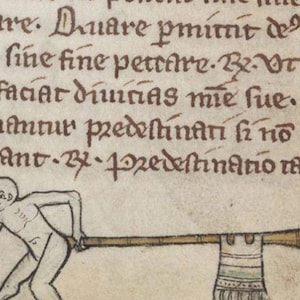 are. Quare permittit deus
sine fine peccare. Rx. Ut
faciat diuicias mie sue.
nantur predestinati si nō
ant. Rx. Predestinatio ta